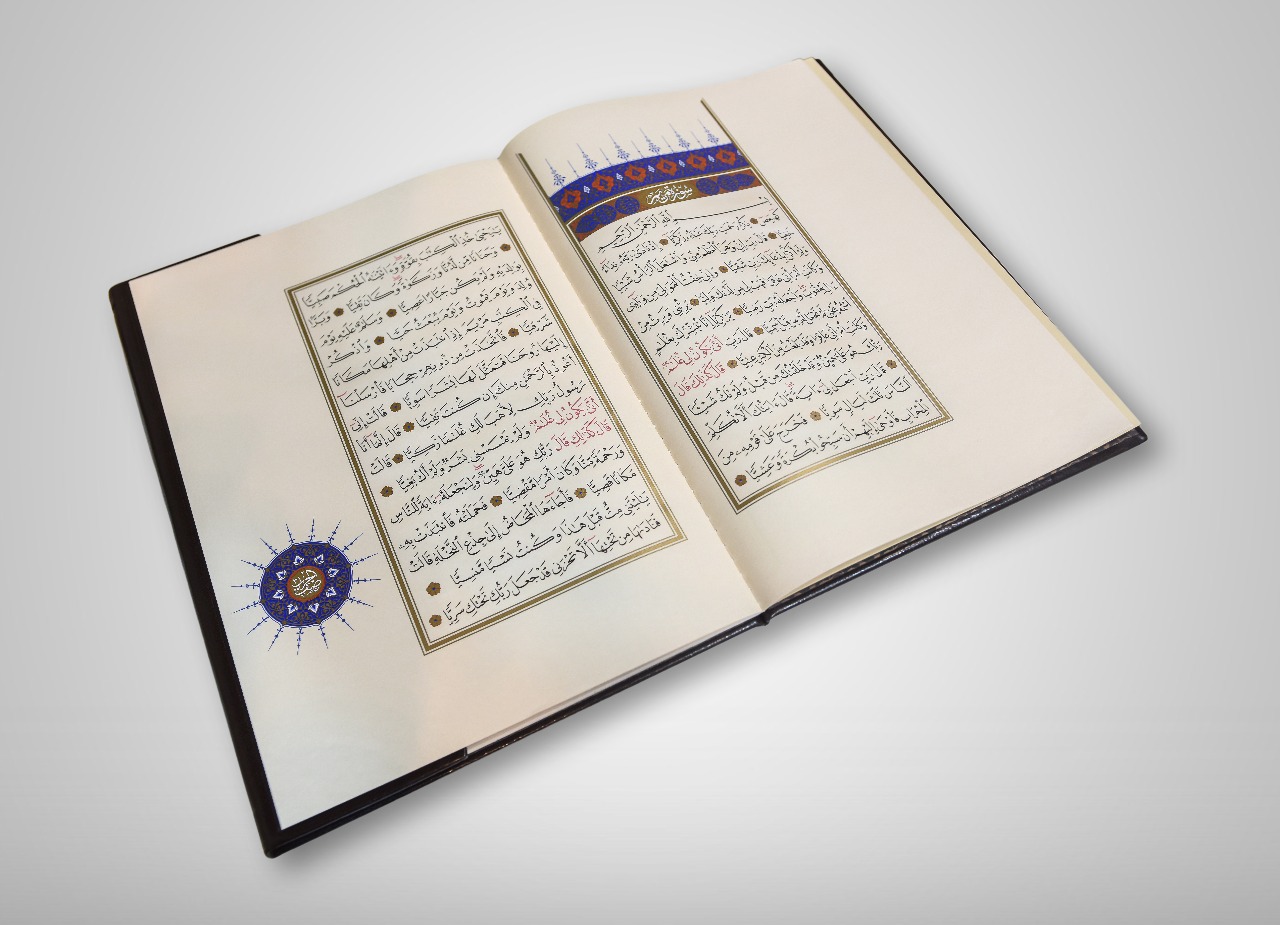 سُورَةُ مَرْيَمَ
بِسْمِ اللَّهِ الرَّحْمَٰنِ الرَّحِيمِ
كٓهيعٓصٓ ذِكْرُ رَحْمَتِ رَبِّكَ عَبْدَهُ زَكَرِيَّا إِذْ نَادَىٰ رَبَّهُ نِدَآءً
خَفِيًّا قَالَ رَبِّ إِنِّي وَهَنَ الْعَظْمُ مِنِّي وَاشْتَعَلَ الرَّأْسُ شَيْبًا
وَلَمْ أَكُنْ بِدُعَآئِكَ رَبِّ شَقِيًّا وَإِنِّي خِفْتُ الْمَوَٰلِيَ مِنْ وَرَآءِي
وَكَانَتِ امْرَأَتِي عَاقِرًا فَهَبْ لِي مِنْ لَدُنْكَ وَلِيًّا يَرِثُنِي وَيَرِثُ مِنْ
ءَالِ يَعْقُوبَ وَاجْعَلْهُ رَبِّ رَضِيًّا يَٰزَكَرِيَّآ إِنَّا نُبَشِّرُكَ بِغُلَٰمٍ
اسْمُهُ يَحْيَىٰ لَمْ نَجْعَلْ لَهُ مِنْ قَبْلُ سَمِيًّا قَالَ رَبِّ أَنَّىٰ يَكُونُ لِي غُلَٰمٌ
وَكَانَتِ امْرَأَتِي عَاقِرًا وَقَدْ بَلَغْتُ مِنَ الْكِبَرِ عِتِيًّا قَالَ كَذَٰلِكَ قَالَ
رَبُّكَ هُوَ عَلَيَّ هَيِّنٌ وَقَدْ خَلَقْتُكَ مِنْ قَبْلُ وَلَمْ تَكُ شَيْئًا
قَالَ رَبِّ اجْعَلْ لِي ءَايَةً قَالَ ءَايَتُكَ أَلَّا تُكَلِّمَ
النَّاسَ ثَلَٰثَ لَيَالٍ سَوِيًّا فَخَرَجَ عَلَىٰ قَوْمِهِ مِنَ
الْمِحْرَابِ فَأَوْحَىٰ إِلَيْهِمْ أَنْ سَبِّحُوا بُكْرَةً وَعَشِيًّا
يَٰيَحْيَىٰ خُذِ الْكِتَٰبَ بِقُوَّةٍ وَءَاتَيْنَٰهُ الْحُكْمَ صَبِيًّا
وَحَنَانًا مِنْ لَدُنَّا وَزَكَوٰةً وَكَانَ تَقِيًّا وَبَرًّا
بِوَٰلِدَيْهِ وَلَمْ يَكُنْ جَبَّارًا عَصِيًّا وَسَلَٰمٌ عَلَيْهِ يَوْمَ
وُلِدَ وَيَوْمَ يَمُوتُ وَيَوْمَ يُبْعَثُ حَيًّا وَاذْكُرْ
فِي الْكِتَٰبِ مَرْيَمَ إِذِ انْتَبَذَتْ مِنْ أَهْلِهَا مَكَانًا
شَرْقِيًّا فَاتَّخَذَتْ مِنْ دُونِهِمْ حِجَابًا فَأَرْسَلْنَآ
إِلَيْهَا رُوحَنَا فَتَمَثَّلَ لَهَا بَشَرًا سَوِيًّا قَالَتْ إِنِّي
أَعُوذُ بِالرَّحْمَٰنِ مِنْكَ إِنْ كُنْتَ تَقِيًّا قَالَ إِنَّمَآ أَنَا۠
رَسُولُ رَبِّكِ لِأَهَبَ لَكِ غُلَٰمًا زَكِيًّا قَالَتْ
أَنَّىٰ يَكُونُ لِي غُلَٰمٌ وَلَمْ يَمْسَسْنِي بَشَرٌ وَلَمْ أَكُ بَغِيًّا
قَالَ كَذَٰلِكِ قَالَ رَبُّكِ هُوَ عَلَيَّ هَيِّنٌ وَلِنَجْعَلَهُ ءَايَةً لِلنَّاسِ
وَرَحْمَةً مِنَّا وَكَانَ أَمْرًا مَقْضِيًّا فَحَمَلَتْهُ فَانْتَبَذَتْ بِهِ
مَكَانًا قَصِيًّا فَأَجَآءَهَا الْمَخَاضُ إِلَىٰ جِذْعِ النَّخْلَةِ قَالَتْ
يَٰلَيْتَنِي مِتُّ قَبْلَ هَٰذَا وَكُنْتُ نَسْيًا مَنْسِيًّا
فَنَادَىٰهَا مِنْ تَحْتِهَآ أَلَّا تَحْزَنِي قَدْ جَعَلَ رَبُّكِ تَحْتَكِ سَرِيًّا